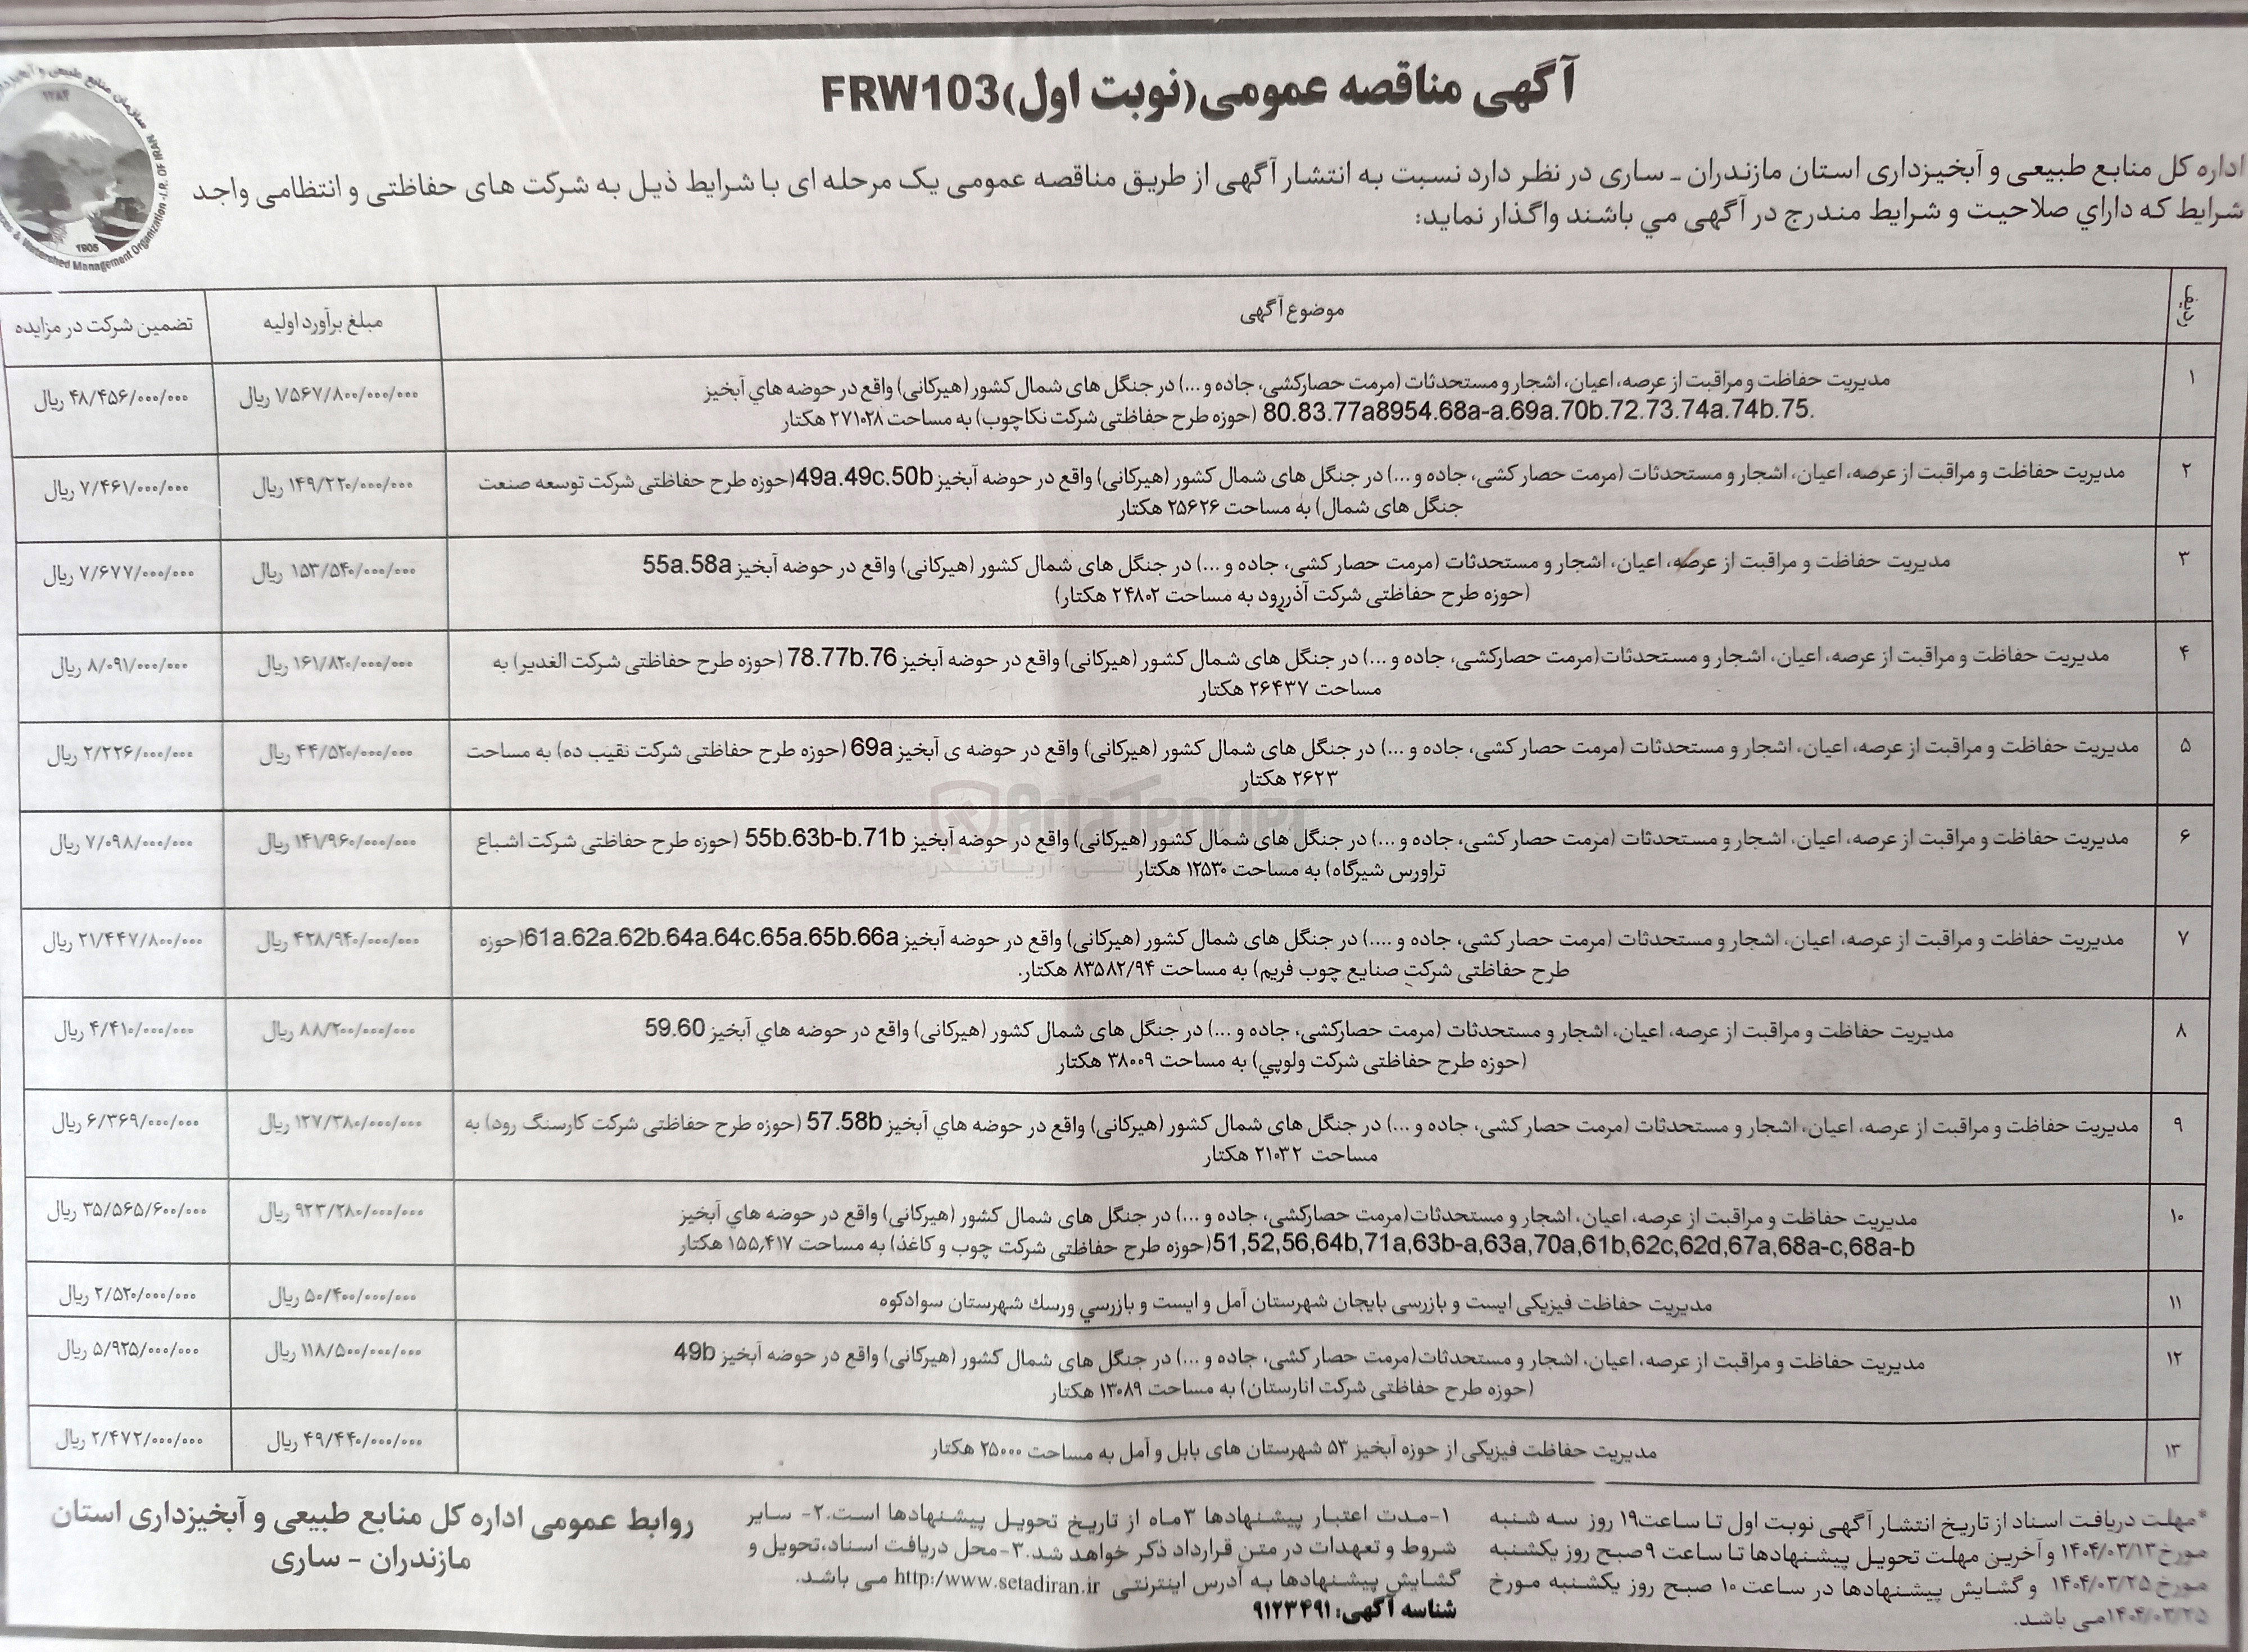 آگهی مناقصه عمومی(نوبت اول)FRW103
۱۲۸۴
سازمان منابع طبیعی و آبخیزداری
I.R. OF IRAN
& Watershed Management Organization
1905
اداره کل منابع طبیعی و آبخیزداری استان مازندران ـ ساری در نظر دارد نسبت به انتشار آگهی از طریق مناقصه عمومی یک مرحله ای با شرایط ذیل به شرکت های حفاظتی و انتظامی واجد
شرایط که دارای صلاحیت و شرایط مندرج در آگهی می باشند واگذار نماید:
ردیف
موضوع آگهی
مبلغ برآورد اولیه
تضمین شرکت در مزایده
۱
مدیریت حفاظت و مراقبت از عرصه، اعیان، اشجار و مستحدثات (مرمت حصارکشی، جاده و ...) در جنگل های شمال کشور (هیرکانی) واقع در حوضه های آبخیز
80.83.77a8954.68a-a.69a.70b.72.73.74a.74b.75. (حوزه طرح حفاظتی شرکت نکاچوب) به مساحت ۲۷۱۰۲۸ هکتار
۱/۵۶۷/۸۰۰/۰۰۰/۰۰۰ ریال
۴۸/۴۵۶/۰۰۰/۰۰۰ ریال
۲
مدیریت حفاظت و مراقبت از عرصه، اعیان، اشجار و مستحدثات (مرمت حصار کشی، جاده و ...) در جنگل های شمال کشور (هیرکانی) واقع در حوضه آبخیز 49a.49c.50b(حوزه طرح حفاظتی شرکت توسعه صنعت
جنگل های شمال) به مساحت ۲۵۶۲۶ هکتار
۱۴۹/۲۲۰/۰۰۰/۰۰۰ ریال
۷/۴۶۱/۰۰۰/۰۰۰ ریال
۳
مدیریت حفاظت و مراقبت از عرصه، اعیان، اشجار و مستحدثات (مرمت حصار کشی، جاده و ...) در جنگل های شمال کشور (هیرکانی) واقع در حوضه آبخیز 55a.58a
(حوزه طرح حفاظتی شرکت آذررود به مساحت ۲۴۸۰۲ هکتار)
۱۵۳/۵۴۰/۰۰۰/۰۰۰ ریال
۷/۶۷۷/۰۰۰/۰۰۰ ریال
۴
مدیریت حفاظت و مراقبت از عرصه، اعیان، اشجار و مستحدثات(مرمت حصارکشی، جاده و ...) در جنگل های شمال کشور (هیرکانی) واقع در حوضه آبخیز 78.77b.76 (حوزه طرح حفاظتی شرکت الغدیر) به
مساحت ۲۶۴۳۷ هکتار
۱۶۱/۸۲۰/۰۰۰/۰۰۰ ریال
۸/۰۹۱/۰۰۰/۰۰۰ ریال
۵
مدیریت حفاظت و مراقبت از عرصه، اعیان، اشجار و مستحدثات (مرمت حصار کشی، جاده و ...) در جنگل های شمال کشور (هیرکانی) واقع در حوضه ی آبخیز 69a (حوزه طرح حفاظتی شرکت نقیب ده) به مساحت
۲۶۲۳ هکتار
۴۴/۵۲۰/۰۰۰/۰۰۰ ریال
۲/۲۲۶/۰۰۰/۰۰۰ ریال
AriaTender
۶
مدیریت حفاظت و مراقبت از عرصه، اعیان، اشجار و مستحدثات (مرمت حصار کشی، جاده و ...) در جنگل های شمال کشور (هیرکانی) واقع در حوضه آبخیز 55b.63b-b.71b (حوزه طرح حفاظتی شرکت اشباع
تراورس شیرگاه) به مساحت ۱۲۵۳۰ هکتار
۱۴۱/۹۶۰/۰۰۰/۰۰۰ ریال
۷/۰۹۸/۰۰۰/۰۰۰ ریال
آریاتندر
۷
مدیریت حفاظت و مراقبت از عرصه، اعیان، اشجار و مستحدثات (مرمت حصار کشی، جاده و ....) در جنگل های شمال کشور (هیرکانی) واقع در حوضه آبخیز 61a.62a.62b.64a.64c.65a.65b.66a(حوزه
طرح حفاظتی شرکت صنایع چوب فریم) به مساحت ۸۳۵۸۲/۹۴ هکتار.
۴۲۸/۹۴۰/۰۰۰/۰۰۰ ریال
۲۱/۴۴۷/۸۰۰/۰۰۰ ریال
۸
مدیریت حفاظت و مراقبت از عرصه، اعیان، اشجار و مستحدثات (مرمت حصارکشی، جاده و ...) در جنگل های شمال کشور (هیرکانی) واقع در حوضه های آبخیز 59.60
(حوزه طرح حفاظتی شرکت ولوپی) به مساحت ۳۸۰۰۹ هکتار
۸۸/۲۰۰/۰۰۰/۰۰۰ ریال
۴/۴۱۰/۰۰۰/۰۰۰ ریال
۹
مدیریت حفاظت و مراقبت از عرصه، اعیان، اشجار و مستحدثات (مرمت حصار کشی، جاده و ...) در جنگل های شمال کشور (هیرکانی) واقع در حوضه های آبخیز 57.58b (حوزه طرح حفاظتی شرکت کارسنگ رود) به
مساحت ۲۱۰۳۲ هکتار
۱۲۷/۳۸۰/۰۰۰/۰۰۰ ریال
۶/۳۶۹/۰۰۰/۰۰۰ ریال
۱۰
مدیریت حفاظت و مراقبت از عرصه، اعیان، اشجار و مستحدثات(مرمت حصارکشی، جاده و ...) در جنگل های شمال کشور (هیرکانی) واقع در حوضه های آبخیز
51,52,56,64b,71a,63b-a,63a,70a,61b,62c,62d,67a,68a-c,68a-b(حوزه طرح حفاظتی شرکت چوب و کاغذ) به مساحت ۱۵۵,۴۱۷ هکتار
۹۲۳/۲۸۰/۰۰۰/۰۰۰ ریال
۳۵/۵۶۵/۶۰۰/۰۰۰ ریال
۱۱
مدیریت حفاظت فیزیکی ایست و بازرسی بایجان شهرستان آمل و ایست و بازرسي ورسك شهرستان سوادکوه
۵۰/۴۰۰/۰۰۰/۰۰۰ ریال
۲/۵۲۰/۰۰۰/۰۰۰ ریال
۱۲
مدیریت حفاظت و مراقبت از عرصه، اعیان، اشجار و مستحدثات(مرمت حصار کشی، جاده و ...) در جنگل های شمال کشور (هیرکانی) واقع در حوضه آبخیز 49b
(حوزه طرح حفاظتی شرکت انارستان) به مساحت ۱۳۰۸۹ هکتار
۱۱۸/۵۰۰/۰۰۰/۰۰۰ ریال
۵/۹۲۵/۰۰۰/۰۰۰ ریال
۱۳
مدیریت حفاظت فیزیکی از حوزه آبخیز ۵۳ شهرستان های بابل و آمل به مساحت ۲۵۰۰۰ هکتار
۴۹/۴۴۰/۰۰۰/۰۰۰ ریال
۲/۴۷۲/۰۰۰/۰۰۰ ریال
*مهلت دریافت اسناد از تاریخ انتشار آگهی نوبت اول تا ساعت۱۹ روز سه شنبه
مورخ۱۴۰۴/۰۳/۱۳ و آخرین مهلت تحویل پیشنهادها تا ساعت ۹صبح روز یکشنبه
مورخ ۱۴۰۴/۰۳/۲۵ و گشایش پیشنهادها در ساعت ۱۰ صبح روز یکشنبه مورخ
۱۴۰۴/۰۳/۲۵می باشد.
۱-مدت اعتبار پیشنهادها ۳ماه از تاریخ تحویل پیشنهادها است.۲- سایر
شروط و تعهدات در متن قرارداد ذکر خواهد شد.۳-محل دریافت اسناد،تحویل و
گشایش پیشنهادها به آدرس اینترنتی http:/www.setadiran.ir می باشد.
شناسه آگهی: ۹۱۲۳۴۹۱
روابط عمومی اداره کل منابع طبیعی و آبخیزداری استان
مازندران - ساری